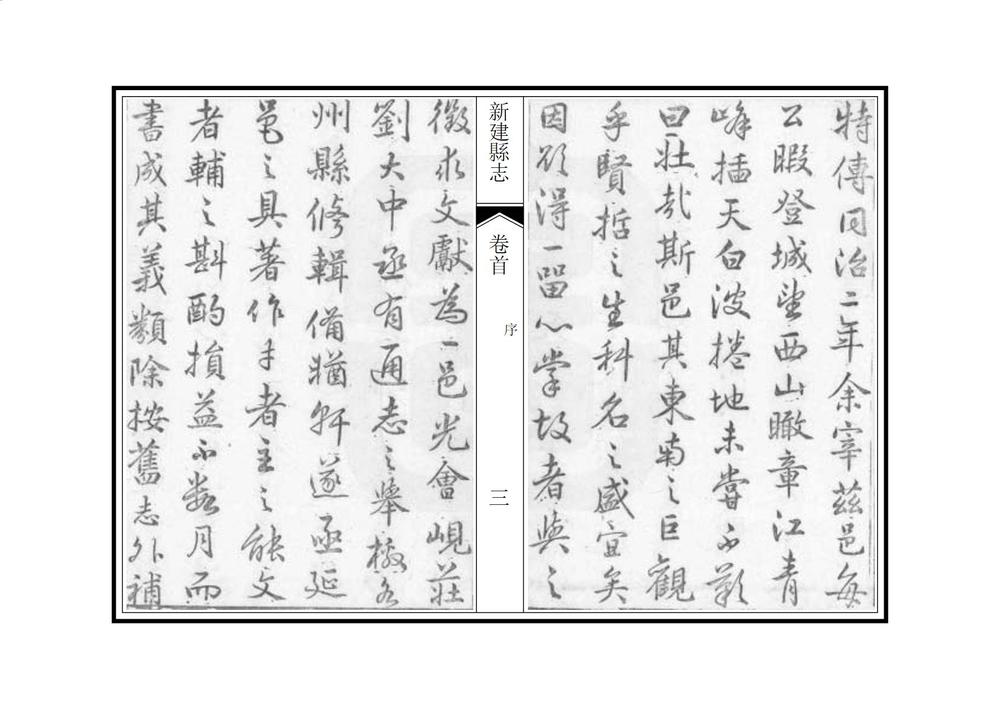 特傳同治二年余宰茲邑每
公暇登城望西山瞰章江青
峰插天白波捲地未嘗不歎
曰壯哉斯邑其東南之巨觀
乎賢哲之生科名之盛宜矣
因欲得一留心掌故者與之
新建縣志
卷首
序
三
徵求文獻為一邑光會峴莊
劉大中丞有通志之舉檄各
州縣修輯備輶軒遂亟延
邑之具著作才者主之能文
者輔之斟酌損益不數月而
書成其義類除按舊志外補